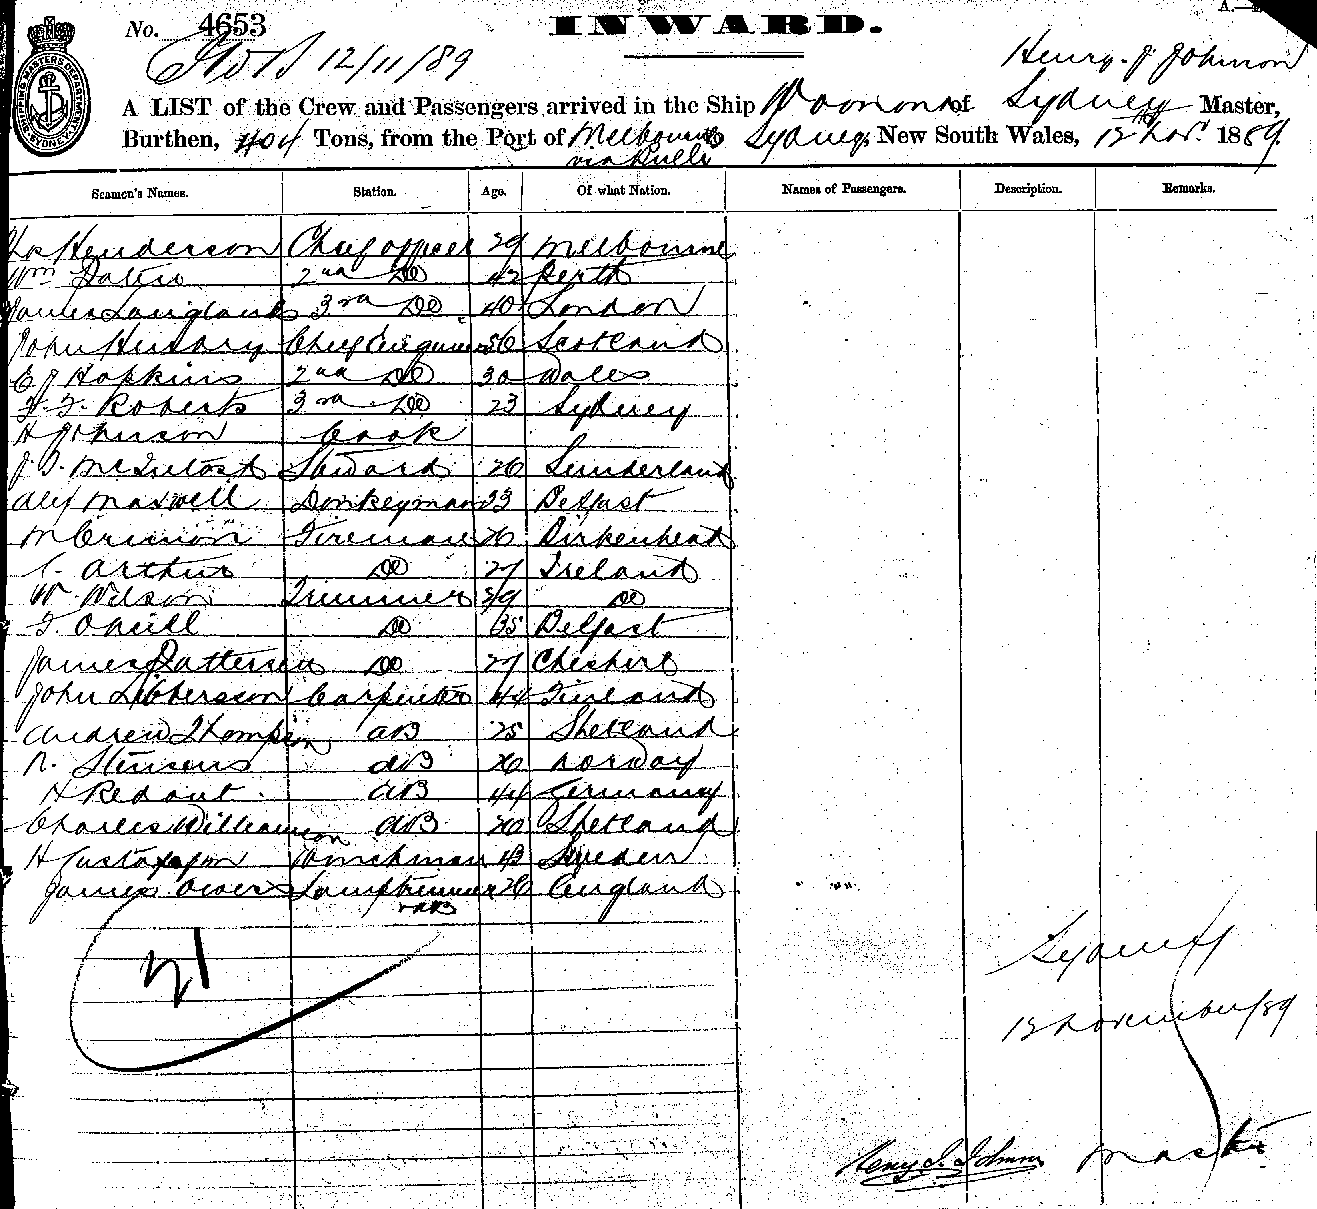 No. 4653 INWARD.
12/11/89 Henry. J. Johnson
A LIST of the Crew and Passengers arrived in the Ship Woonona of Sydney Master,
Burthen, 404 Tons, from the Port of Melbourne Sydney, New South Wales, 12th Nov. 1889.
via Bulli
SHIPPING MASTERS DEPARTMENT SYDNEY
Seamen's Names. Station. Age. Of what Nation. Names of Passengers. Description. Remarks.
Henderson Chief officer 29 Melbourne
Wm 2nd Do 42 Perth
James Langlands 3rd Do 40 London
John Chief Engineer 56 Scotland
E J Hopkins 2nd Do 30 Wales
Roberts 3rd Do 23 Sydney
H Johnson Cook
J. McIntosh Steward 26 Sunderland
Alex Maxwell Donkeyman 33 Belfast
Fireman 26 Birkenhead
Arthur Do 27 Ireland
W. Wilson Trimmer 29 Do
O'Neill Do 35 Belfast
James Patterson Do 27 Cheshire
John Carpenter 44 Finland
Andrew Thompson AB 25 Shetland
AB 26 Norway
H Redout AB 44 Germany
Charles Williamson AB 26 Shetland
H Gustafson Winchman 43 Sweden
James Owers Lamptrimmer 26 England
& AB
21
Sydney
12 November/89
Henry J. Johnson Master